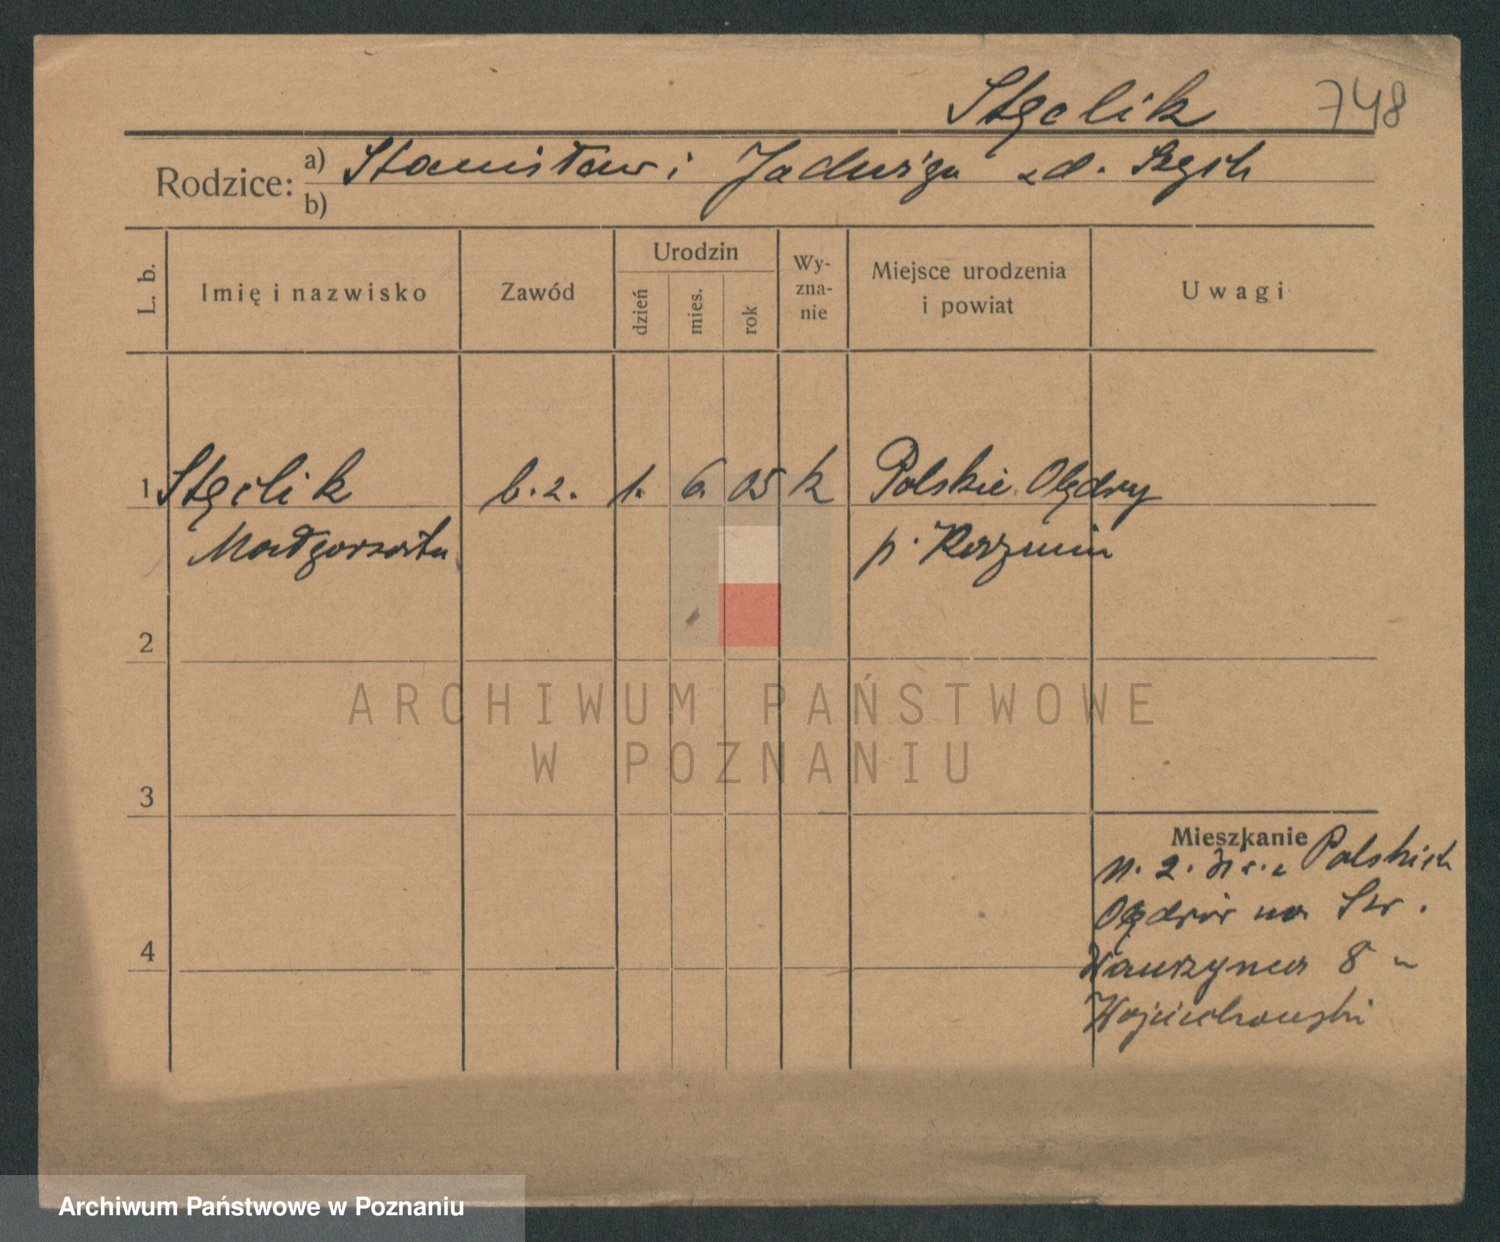 Stęclik 748
Rodzice: a) Stanisław i Jadwiga
b)
L. b.
Imię i nazwisko
Zawód
Urodzin
dzień
mies.
rok
Wy-
zna-
nie
Miejsce urodzenia
i powiat
Uwagi
1 Stęclik b. z. 1. 6. 05 k Polskie Olędry
Małgorzata p. Koźmin
2
ARCHIWUM PAŃSTWOWE
W POZNANIU
3
Mieszkanie
Polskich
Olędrów na Św.
Wawrzyńca 8 u
Wojciechowski
4
Archiwum Państwowe w Poznaniu